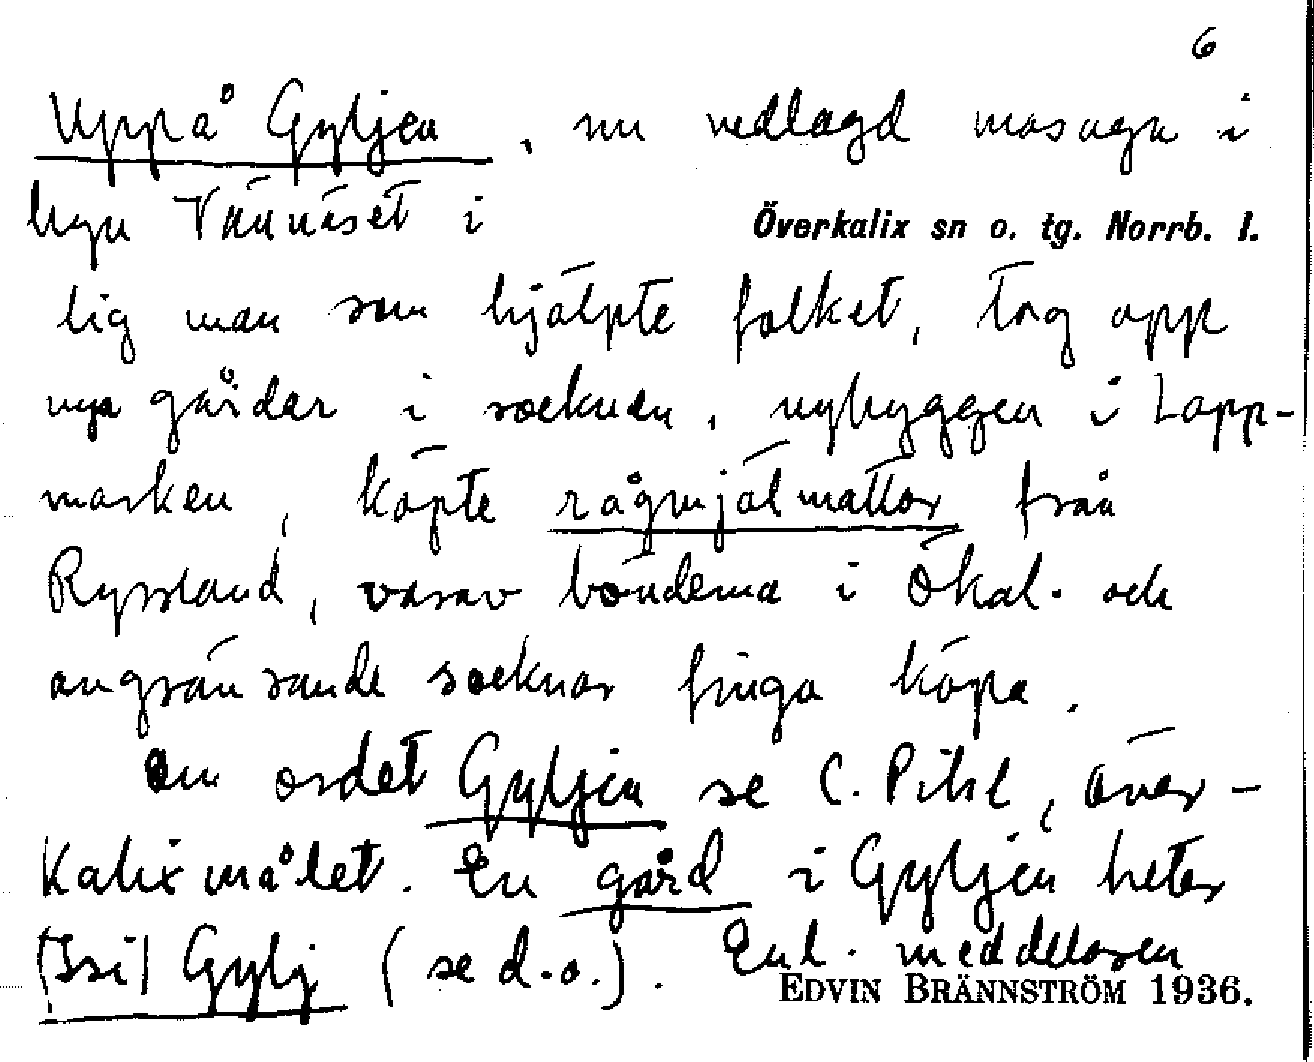 6
Uppå Gyljen, nu nedlagd masugn i
byn Vännäset i Överkalix sn o. tg. Norrb. l.
lig man som hjälpte folket, tog opp
nya gårdar i socknen, nybyggen i Lapp-
marken, köpte rågmjölmattor från
Ryssland, varav bönderna i Ökal. och
angränsande socknar finga köpa.
Om ordet Gyljen se C. Pihl, Över-
kalixmålet. En gård i Gyljen heter
(Isi) Gylj (se d.o.). Enl. meddelaren
EDVIN BRÄNNSTRÖM 1936.